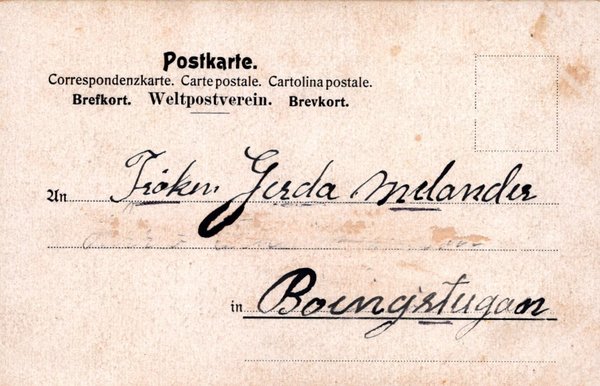 Postkarte.
Correspondenzkarte. Carte postale. Cartolina postale.
Brefkort. Weltpostverein. Brevkort.
An Fröken Gerda Melander
in Boingstugan